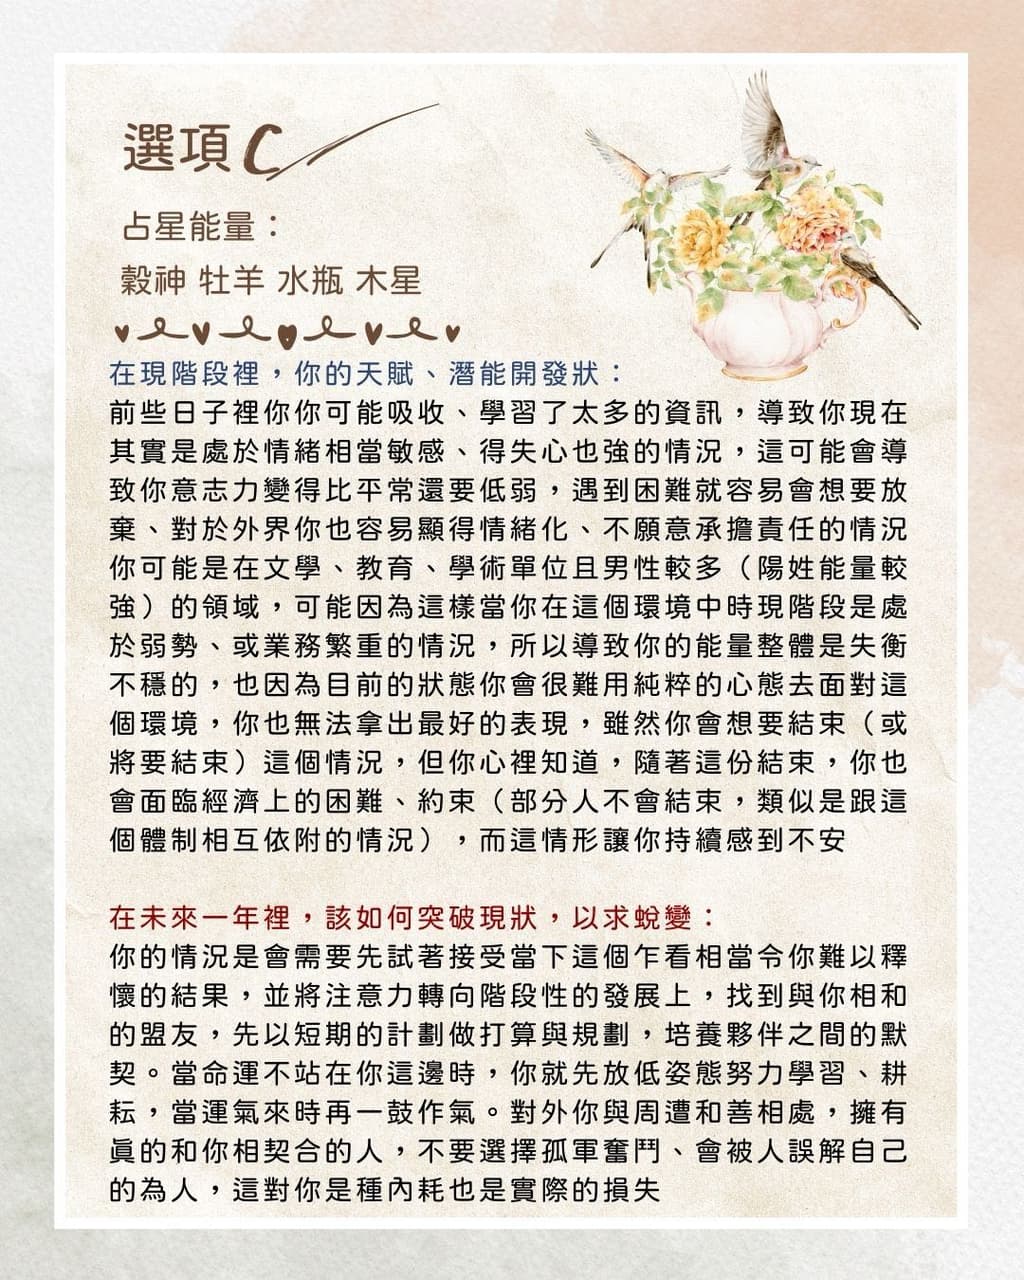 選項C
占星能量：
穀神 牡羊 水瓶 木星
在現階段裡，你的天賦、潛能開發狀：
前些日子裡你你可能吸收、學習了太多的資訊，導致你現在
其實是處於情緒相當敏感、得失心也強的情況，這可能會導
致你意志力變得比平常還要低弱，遇到困難就容易會想要放
棄、對於外界你也容易顯得情緒化、不願意承擔責任的情況
你可能是在文學、教育、學術單位且男性較多（陽姓能量較
強）的領域，可能因為這樣當你在這個環境中時現階段是處
於弱勢、或業務繁重的情況，所以導致你的能量整體是失衡
不穩的，也因為目前的狀態你會很難用純粹的心態去面對這
個環境，你也無法拿出最好的表現，雖然你會想要結束（或
將要結束）這個情況，但你心裡知道，隨著這份結束，你也
會面臨經濟上的困難、約束（部分人不會結束，類似是跟這
個體制相互依附的情況），而這情形讓你持續感到不安
在未來一年裡，該如何突破現狀，以求蛻變：
你的情況是會需要先試著接受當下這個乍看相當令你難以釋
懷的結果，並將注意力轉向階段性的發展上，找到與你相和
的盟友，先以短期的計劃做打算與規劃，培養夥伴之間的默
契。當命運不站在你這邊時，你就先放低姿態努力學習、耕
耘，當運氣來時再一鼓作氣。對外你與周遭和善相處，擁有
真的和你相契合的人，不要選擇孤軍奮鬥、會被人誤解自己
的為人，這對你是種內耗也是實際的損失